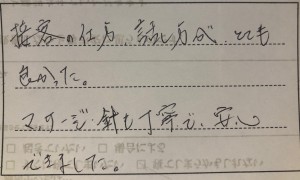 接客の仕方 話し方が、とても
良かった。
マッサージ・針も丁寧で、安心
できました。